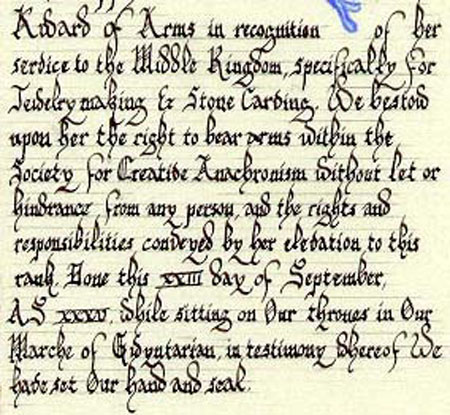 Award of Arms in recognition of her
service to the Middle Kingdom, specifically for
Jewelry making & Stone Carving. We bestow
upon her the right to bear arms within the
Society for Creative Anachronism without let or
hindrance from any person, and the rights and
responsibilities conveyed by her elevation to this
rank. Done this XXIII day of September,
A.S XXXV, while sitting on Our thrones in Our
Marche of Gwyntarian, in testimony whereof We
have set Our hand and seal.